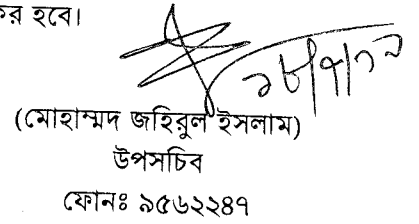 কর হবে।
(মোহাম্মদ জহিরুল ইসলাম)
উপসচিব
ফোনঃ ৯৫৬২২৪৭